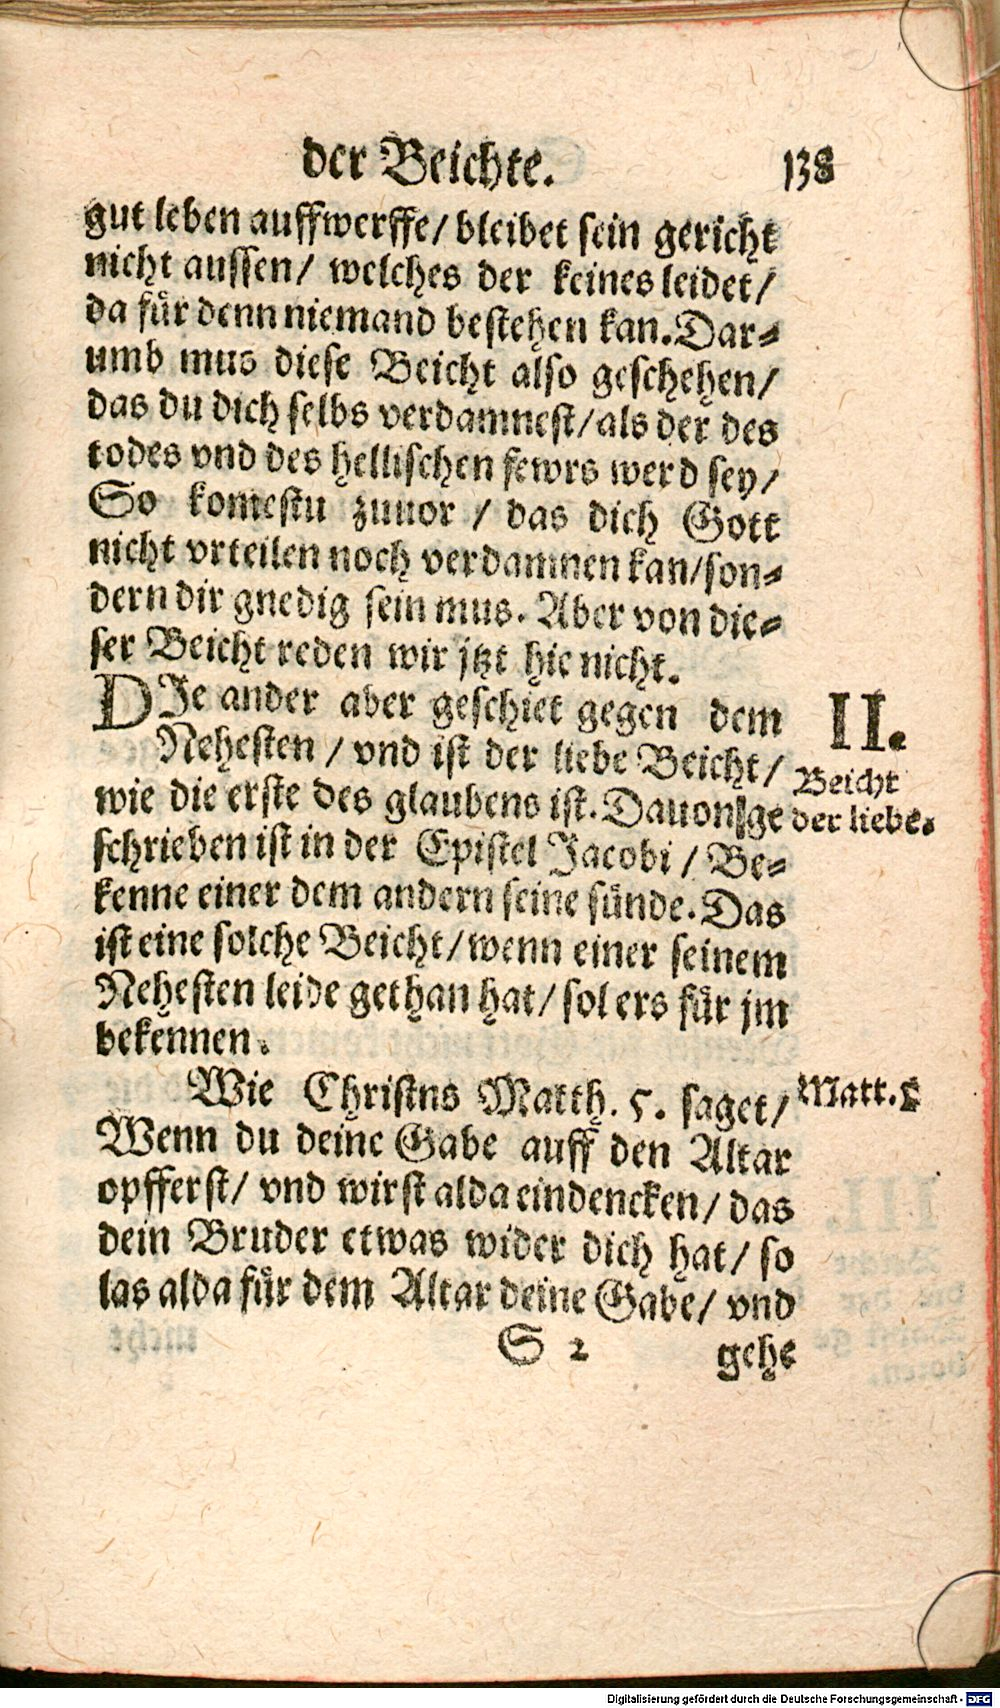 der Beichte. 138
gut leben auffwerffe/ bleibet sein gericht
nicht aussen/ welches der keines leidet/
da für denn niemand bestehen kan. Dar⸗
umb mus diese Beicht also geschehen/
das du dich selbs verdamnest/ als der des
todes vnd des hellischen fewrs werd sey/
So komestu zuuor / das dich Gott
nicht vrteilen noch verdamnen kan/ son⸗
dern dir gnedig sein mus. Aber von die⸗
ser Beicht reden wir jtzt hie nicht.
DJe ander aber geschiet gegen dem
Nehesten / vnd ist der liebe Beicht/
wie die erste des glaubens ist. Dauon ge
schrieben ist in der Epistel Jacobi / Be⸗
kenne einer dem andern seine sünde. Das
ist eine solche Beicht/ wenn einer seinem
Nehesten leide gethan hat/ sol ers für jm
bekennen.
II.
Beicht
der liebe.
Wie Christns Matth. 5. saget/
Wenn du deine Gabe auff den Altar
opfferst/ vnd wirst alda eindencken/ das
dein Bruder etwas wider dich hat/ so
las alda für dem Altar deine Gabe/ vnd
Matt. 5
S 2 gehe
Digitalisierung gefördert durch die Deutsche Forschungsgemeinschaft - DFG